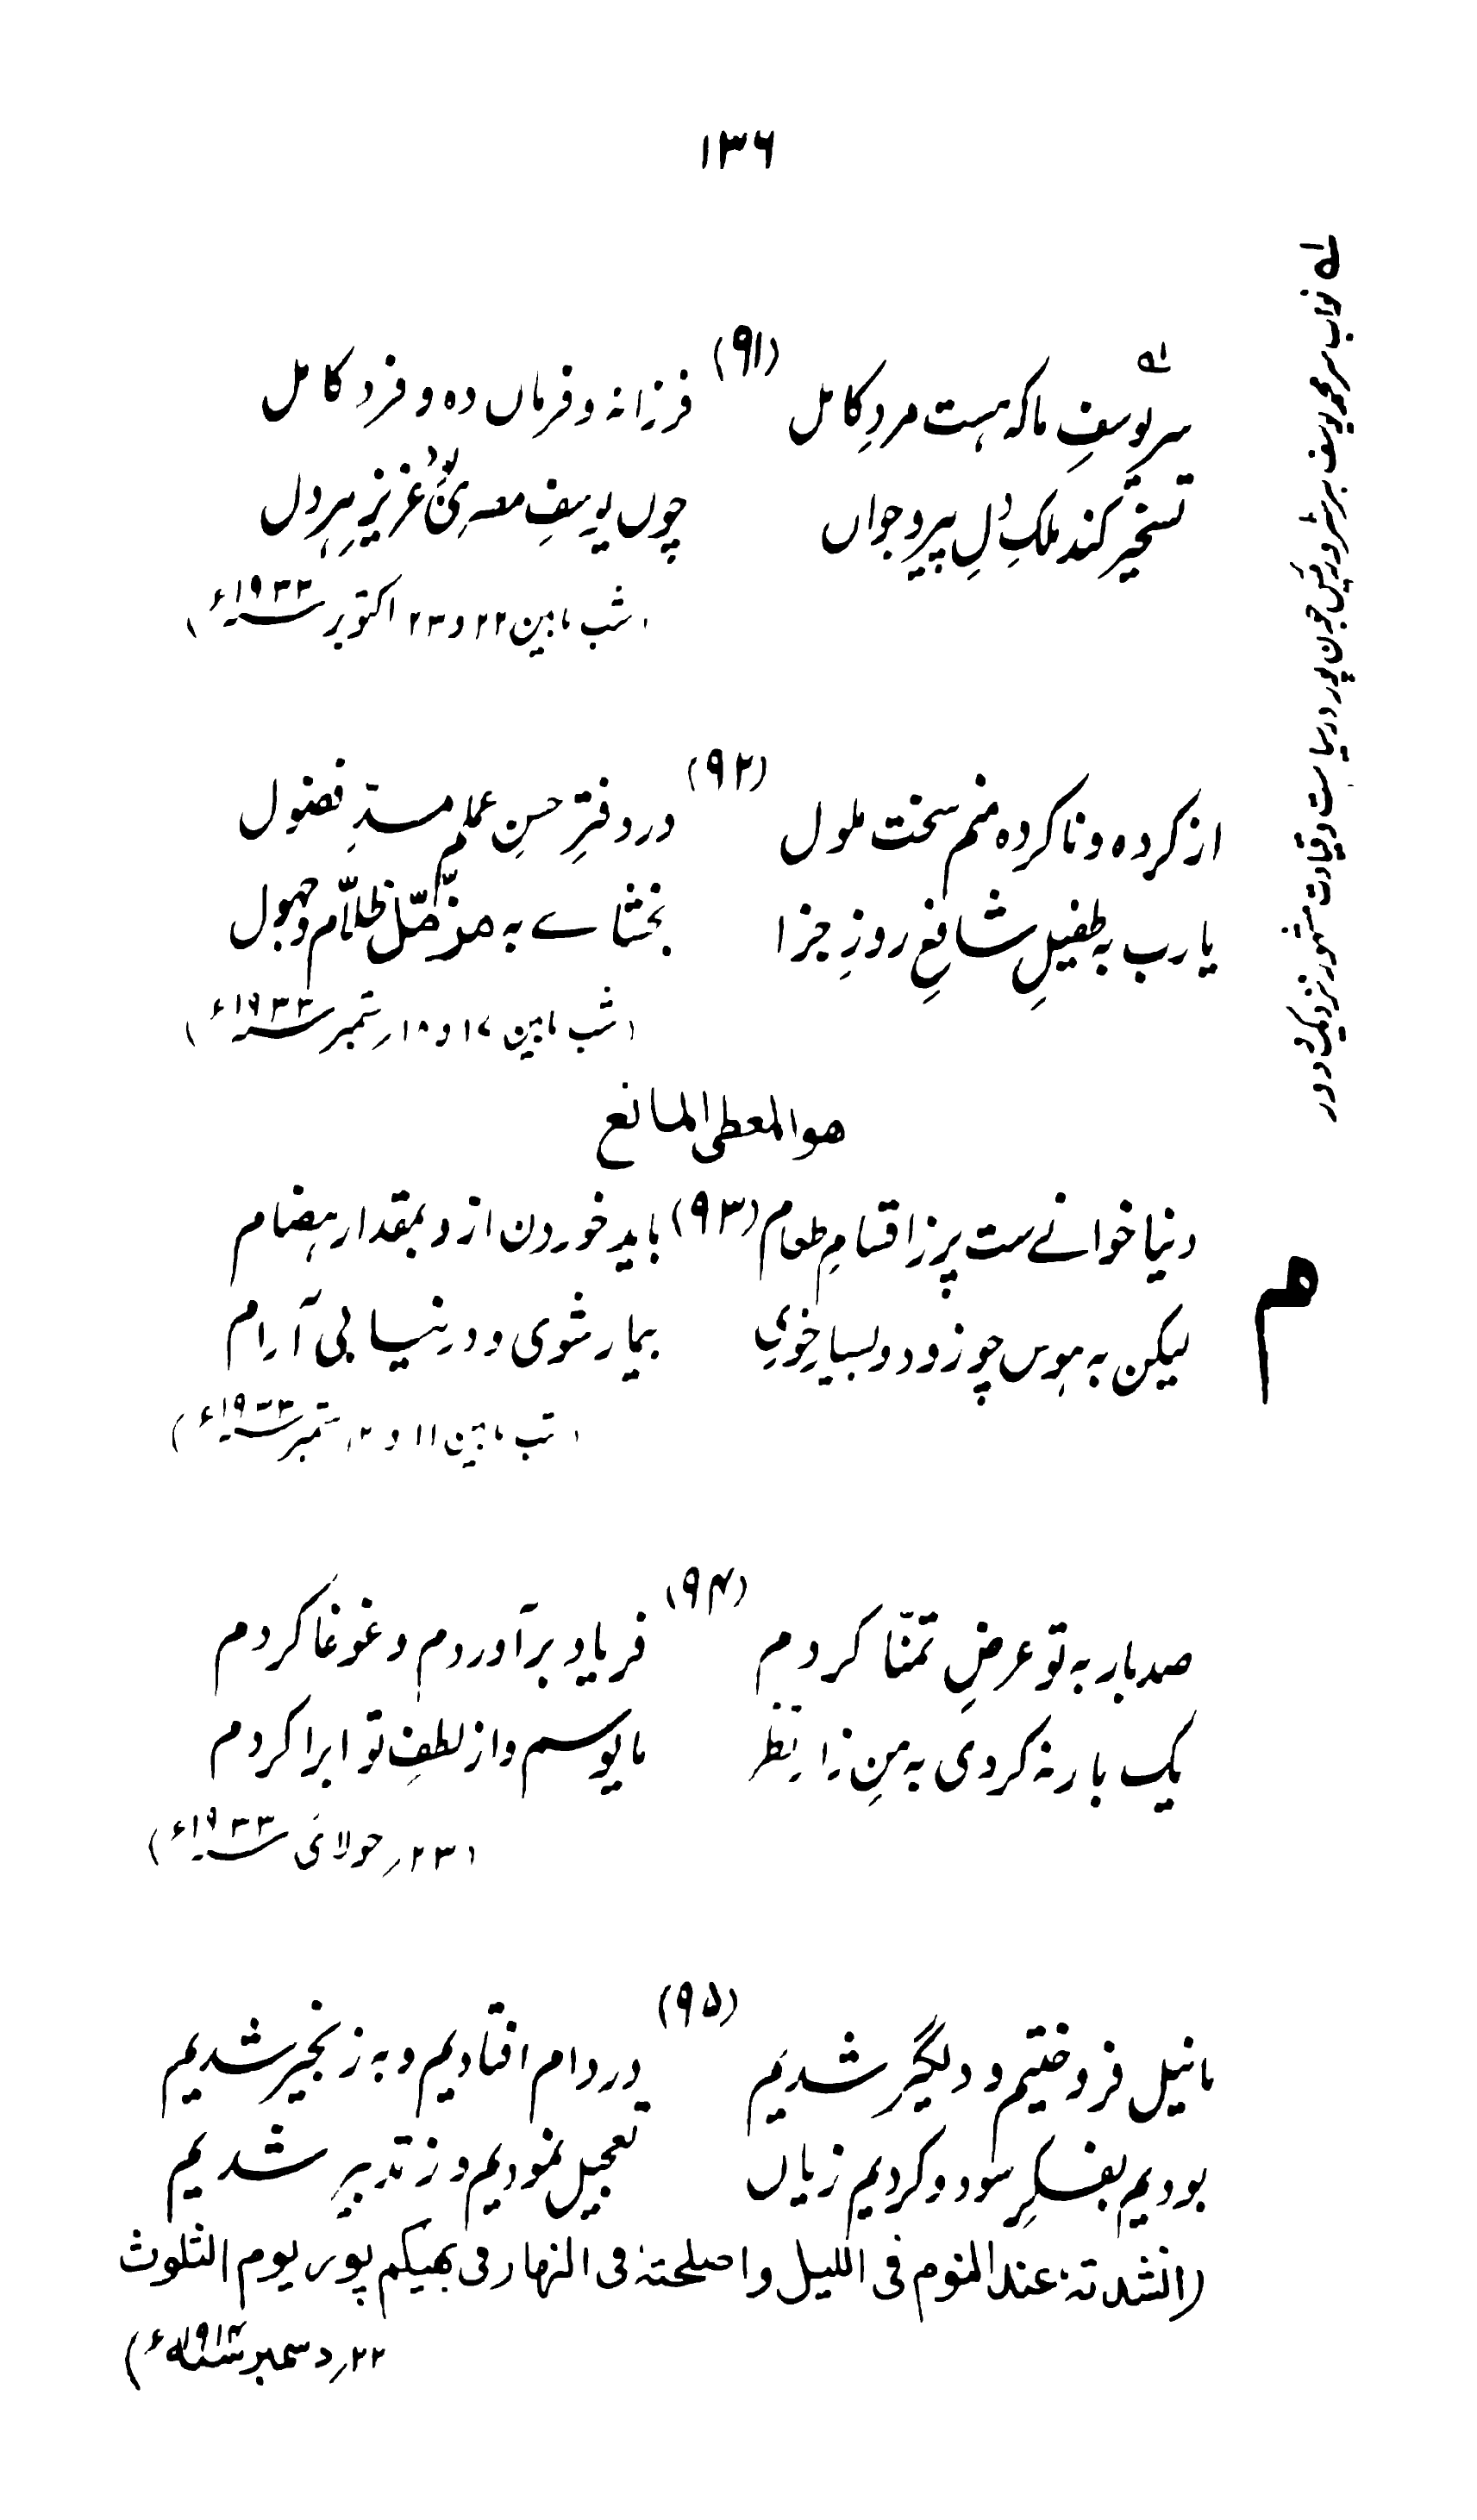 ۱۳۶
(۹۱)
سر یوسفِ ما کہ ہست مردِ کامل فرزانہ و فرماں دہ و فرد کامل
تسخیر کند ملکِ دلِ پیر و جواں چوں یوسفِ مصری عزیزِ ہر دل
(شب مابین ۲۲ و ۲۳ اکتوبر ۱۹۳۳ء)
(۹۲)
از کردہ و ناکردہ منم سخت ملول در دفترِ حسنِ عملم ستِ فضول
یارب بہ طفیلِ شافعِ روزِ جزا بخشاے بہ من ظلّام و جہول
(شب مابین و ۱۰ ستمبر ۱۹۳۳ء)
ھو المعطی المانع
(۹۳)
دنیا خوانے ست پر ز اقسامِ طعام باید خوردن ازو بقدارِ ہضام
لیکن بہ ہوس چو زود و بسیار خوری بیمار شوی و در نیابی آرام
(شب مابین ۱۱ و ستمبر ۱۹۳۳ء)
(۹۴)
صد بار بہ تو عرضِ تمنّا کردم فریاد برآوردم و غوغا کردم
یک بار نہ کردی بہ منِ زار نظر مایوسم و از لطفِ تو ابرا کردم
(۲۳ر جولائی ۱۹۳۳ء)
(۹۵)
ما نیل فروختیم و دلگیر شدیم در دام افتادیم و بہ زنجیر شدیم
بودیم بفکرِ سود و کردیم زیاں تعجیل نمودیم و ز تدبیر شدیم
(انشدتہٗ عند النوم فی اللیل و اصلحتہٗ فی النهار فی بھیکم پور یوم الثلوث
۲۲ر دسمبر ۱۹۱۴ء)
م